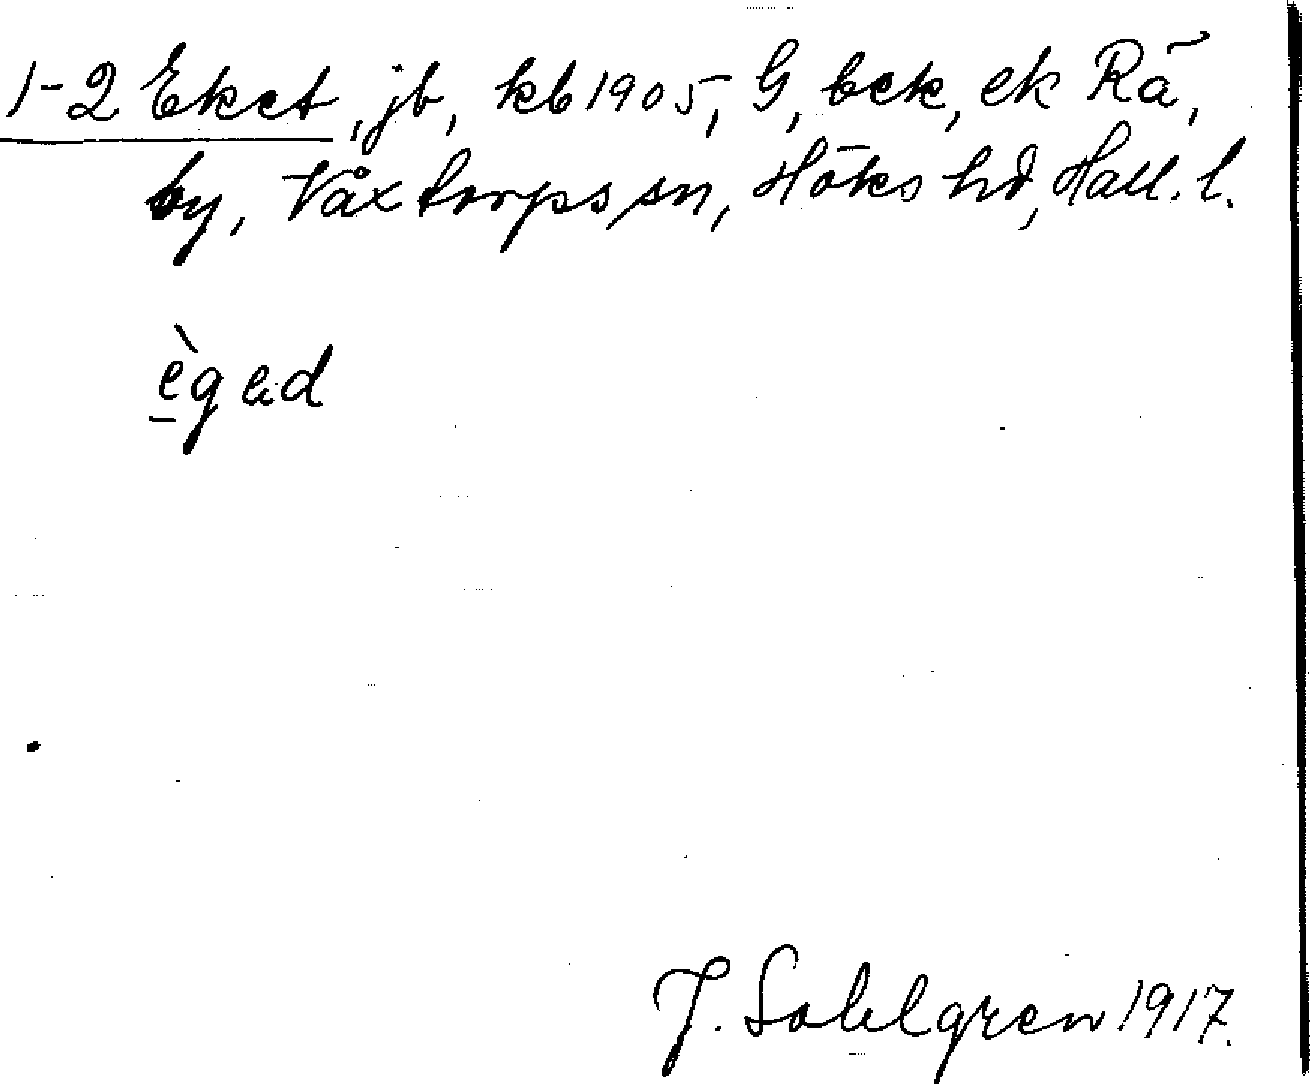 1-2 Eket, jb, kb 1905, G, bek, ek Rä,
by, Våxtorps sn, Höks hd, Hall. l.
ègad
J. Sahlgren 1917.